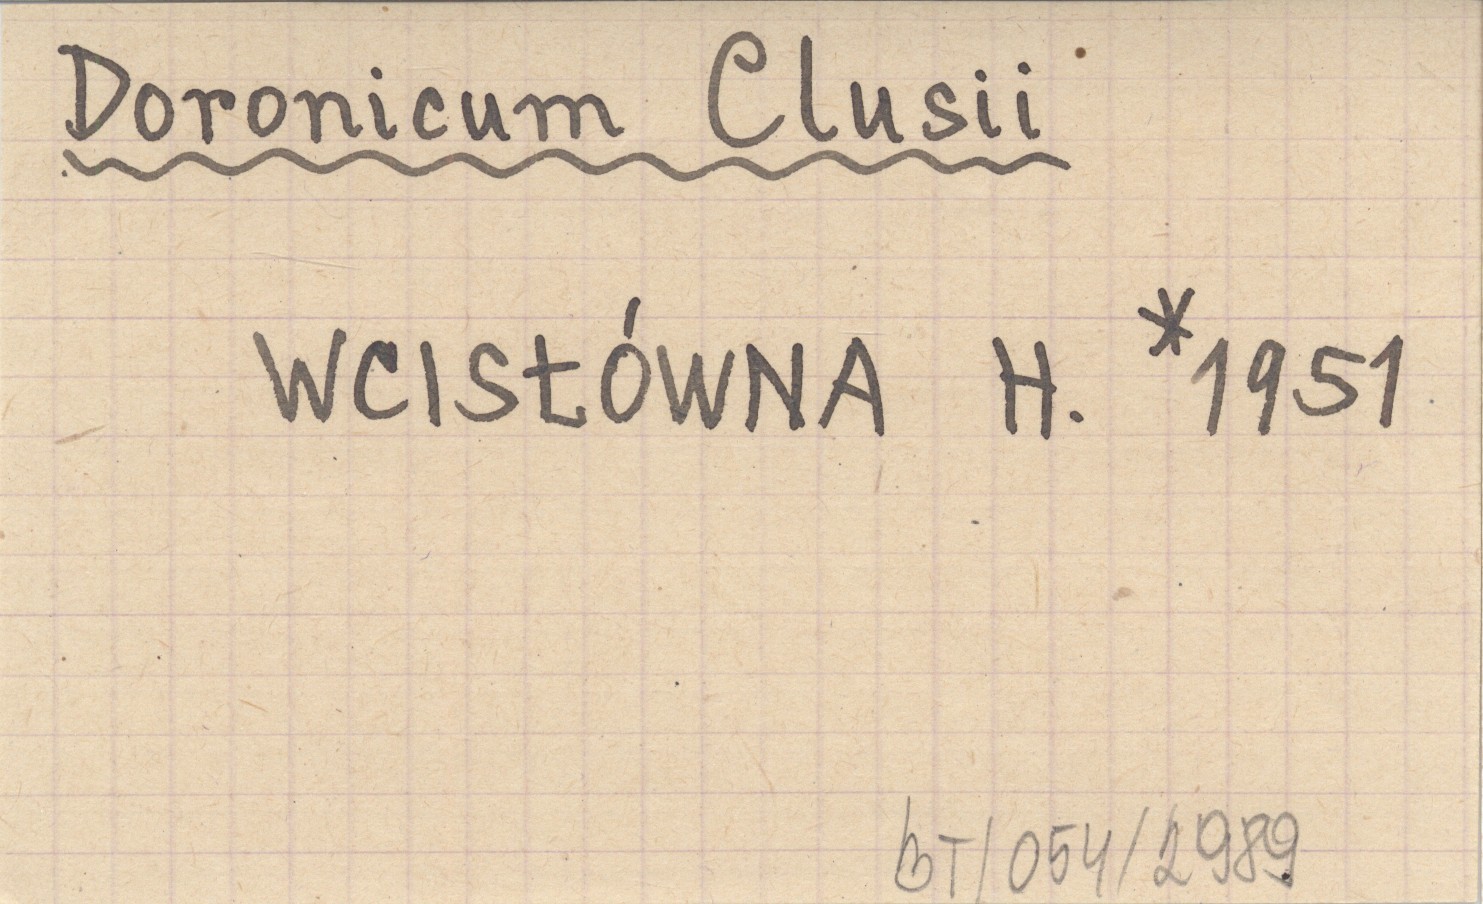 Doronicum Clusii
WCISŁÓWNA H. *1951
BT/054/2989